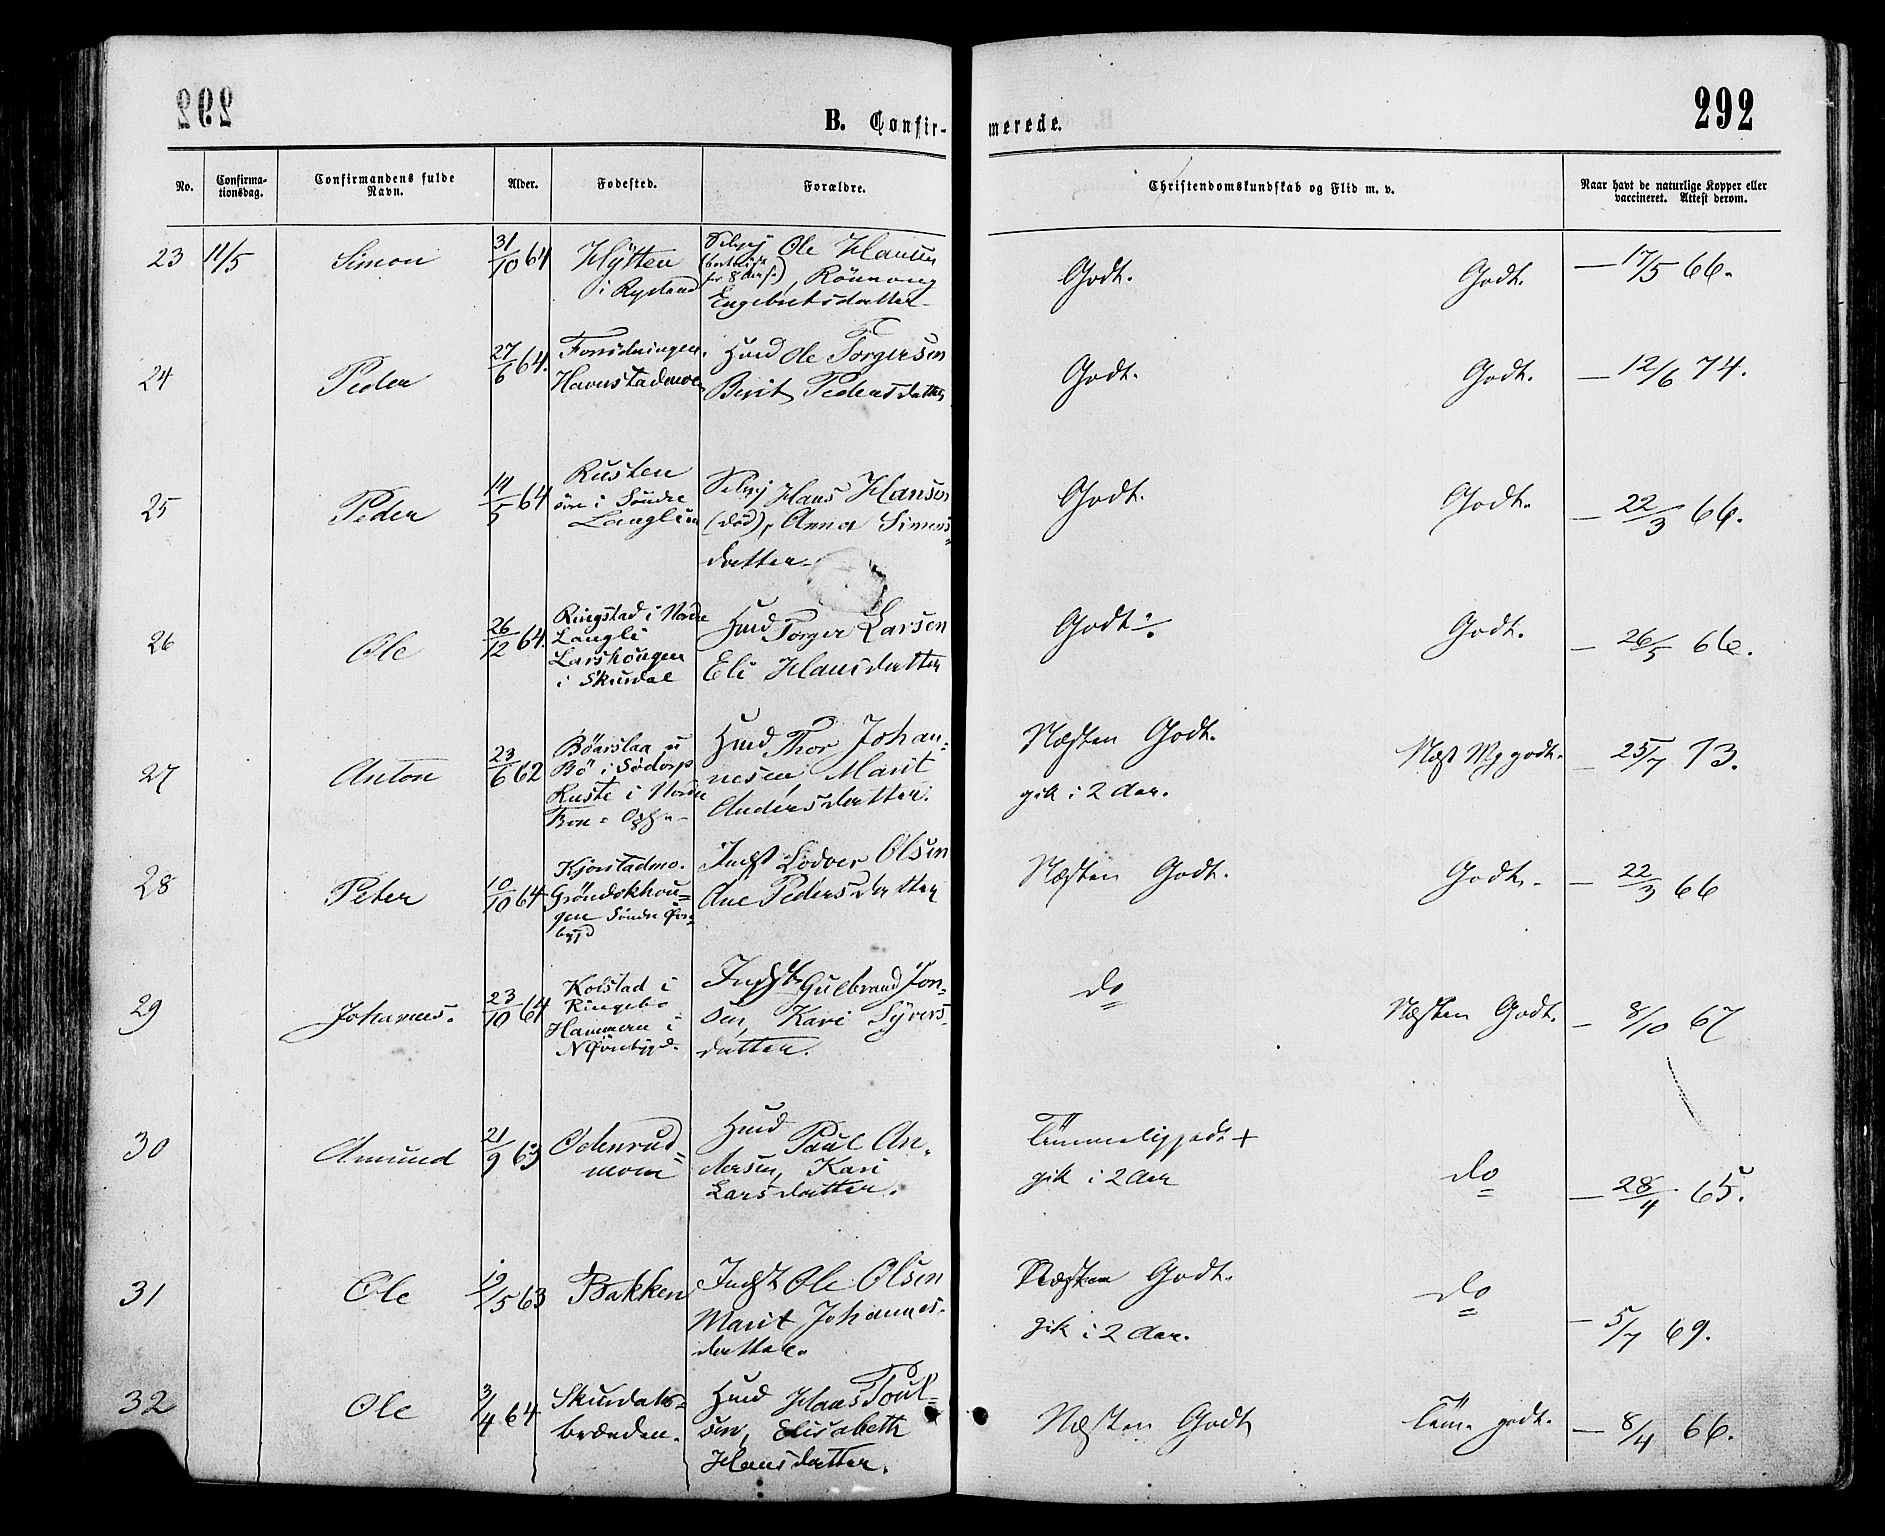 292
B. Confir-
merede.
292
No.
Confirma-
tionsdag.
Confirmandens fulde
Navn.
Alder.
Fødested.
Forældre.
Christendomskundskab og Flid m. v.
Naar havt de naturlige Kopper eller
vaccineret. Attest derom.
23 11/5 Simon 31/10 64 Hÿtten
i Rysland
Selvej Ole Hansen
Rönnaug
Engebretsdatter
Godt. Godt. — 17/5 66.
24 Peder 27/6 64. Havnstadmoe
Husd Ole Torgersen
Berit Pedersdatter
Godt. Godt. — 12/6 74.
25 Peder 14/5 64 Rusten
övre i Söndre
Langlien
Selvej Hans Hansen
(død), Anna Simens-
datter.
Godt. Godt. — 22/3 66.
26 Ole 26/12 64. Ringstad i Nordre
Langli
Larshougen
i Skurdal
Husd Torger Larsen
Eli Hansdatter
Godt. Godt. — 26/5 66.
27 Anton 23/6 62
Bö i Södorp
Ruste i Nordre
Husd Thor Johan-
nesen, Marit
Andersdatter.
Næsten Godt.
gik i 2 Aar.
Næst Mg godt. — 25/7 73.
28 Peter 10/10 64 Kjorstadmo.
Gröndokhou-
gen Söndre
bygd
Indst Lodver Olsen
Ane Pedersdatter
Næsten Godt. Godt. — 22/3 66
29 Johannes. 23/10 64 Kolstad i
Ringebo
Hammern i
Indst Gulbrand Jon-
sen, Kari Syvers-
datter.
do Næsten Godt. — 8/10 67
30 Amund 21/9 63 Odenrud-
moen
Husd Paul An-
dersen, Kari
Larsdatter.
Temmelig godt +
gik i 2 Aar
do — 28/4 65.
31 Ole 12/5 63 Bakken
Indst Ole Olsen
Marit Johannes-
datter.
Næsten Godt.
gik i 2 Aar.
do — 5/7 69.
32 Ole 3/4 64 Skurdals-
brænden.
Husd Hans Poul-
sen, Elisabeth
Hansdatter.
Næsten Godt Tem. godt. — 8/4 66.